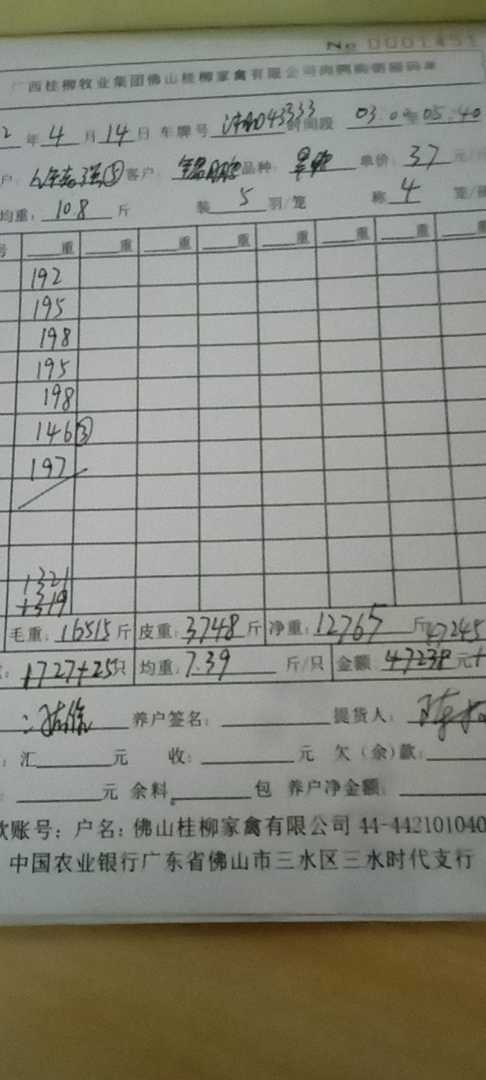 No 0001451
广西桂柳牧业集团佛山桂柳家禽有限公司肉鸭购销磅码单
2 年 4 月 14 日 车牌号 43333 时间段 03.00 至 05.40
户: 客户: 品种: 单价: 37 元/
均重: 10.8 斤 装 5 羽/笼 称 4 笼/
号 重 重 重 重 重 重 重
192
195
198
195
198
146 ③
197
1321
+319
毛重: 16515 斤 皮重: 3748 斤 净重: 12767 斤 47245
1727+25 只 均重: 7.39 斤/只 金额 47238 元+
养户签名: 提货人:
: 汇 元 收: 元 欠(余)款:
: 元 余料 包 养户净金额:
款账号: 户名: 佛山桂柳家禽有限公司 44-442101040
中国农业银行广东省佛山市三水区三水时代支行